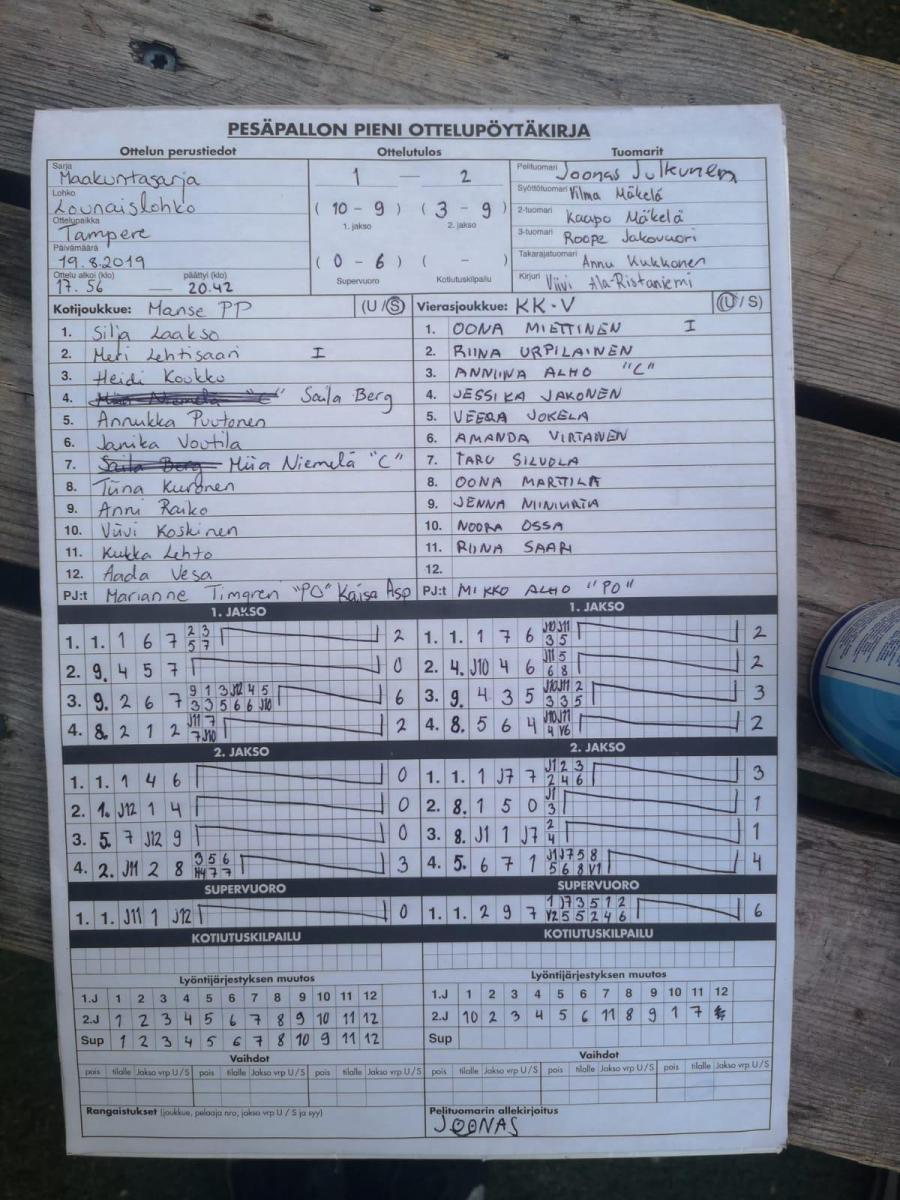 PESÄPALLON PIENI OTTELUPÖYTÄKIRJA
Ottelun perustiedot Ottelutulos Tuomarit
Sarja Maakuntasarja
Lohko Lounaislohko
Ottelupaikka Tampere
Päivämäärä 19.8.2019
Ottelu alkoi (klo) 17.56 — päättyi (klo) 20.42
1 — 2
( 10 - 9 ) ( 3 - 9 )
1. jakso 2. jakso
( 0 - 6 ) ( - )
Supervuoro Kotiutuskilpailu
Pelituomari Joonas Julkunen
Syöttötuomari Vilma Mäkelä
2-tuomari Kaapo Mäkelä
3-tuomari Roope Jakovuori
Takarajatuomari Annu Kukkonen
Kirjuri Viivi Ala-Ristaniemi
Kotijoukkue: Manse PP (U/S)
1. Silja Laakso
2. Meri Lehtisaari I
3. Heidi Koukko
4. Miia Niemelä "C" Saila Berg
5. Annukka Puutonen
6. Janika Voutila
7. Saila Berg Miia Niemelä "C"
8. Tiina Kuronen
9. Anni Raiko
10. Viivi Koskinen
11. Kukka Lehto
12. Aada Vesa
PJ:t Marianne Timgren "PO" Kaisa Asp
Vierasjoukkue: KK-V (U/S)
1. OONA MIETTINEN I
2. RIINA URPILAINEN
3. ANNIINA ALHO "C"
4. JESSIKA JAKONEN
5. VEERA JOKELA
6. AMANDA VIRTANEN
7. TARU SILVOLA
8. OONA MARTTILA
9. JENNA NINIVIRTA
10. NOORA OSSA
11. RIINA SAARI
12.
PJ:t MIKKO ALHO "PO"
1. JAKSO
1. 1. 1 6 7 2 3 5 7 2
2. 9. 4 5 7 0
3. 9. 2 6 7 9 1 3 J12 4 5 3 3 5 6 6 J10 6
4. 8. 2 1 2 J11 7 7 J10 2
2. JAKSO
1. 1. 1 4 6 0
2. 1. J12 1 4 0
3. 5. 7 J12 9 0
4. 2. J11 2 8 3 5 6 7 7 3
SUPERVUORO
1. 1. J11 1 J12 0
KOTIUTUSKILPAILU
1. JAKSO
1. 1. 1 7 6 J10 J11 3 5 2
2. 4. J10 4 6 J11 5 6 8 2
3. 9. 4 3 5 J10 J11 2 3 3 5 3
4. 8. 5 6 4 J10 J11 4 V6 2
2. JAKSO
1. 1. 1 J7 7 J1 2 3 2 4 6 3
2. 8. 1 5 0 J1 3 1
3. 8. J1 1 J7 2 4 1
4. 5. 6 7 1 J1 J7 5 8 5 6 8 V1 4
SUPERVUORO
1. 1. 2 9 7 1 J7 3 5 1 2 V2 5 5 2 4 6 6
KOTIUTUSKILPAILU
Lyöntijärjestyksen muutos
1.J 1 2 3 4 5 6 7 8 9 10 11 12
2.J 1 2 3 4 5 6 7 8 9 10 11 12
Sup 1 2 3 4 5 6 7 8 10 9 11 12
Vaihdot
pois tilalle Jakso vrp U/S pois tilalle Jakso vrp U/S pois tilalle Jakso vrp U/S
Rangaistukset (joukkue, pelaaja nro, jakso vrp U / S ja syy)
Lyöntijärjestyksen muutos
1.J 1 2 3 4 5 6 7 8 9 10 11 12
2.J 10 2 3 4 5 6 11 8 9 1 7
Sup
Vaihdot
pois tilalle Jakso vrp U/S pois tilalle Jakso vrp U/S pois tilalle Jakso vrp U/S
Pelituomarin allekirjoitus
JOONAS